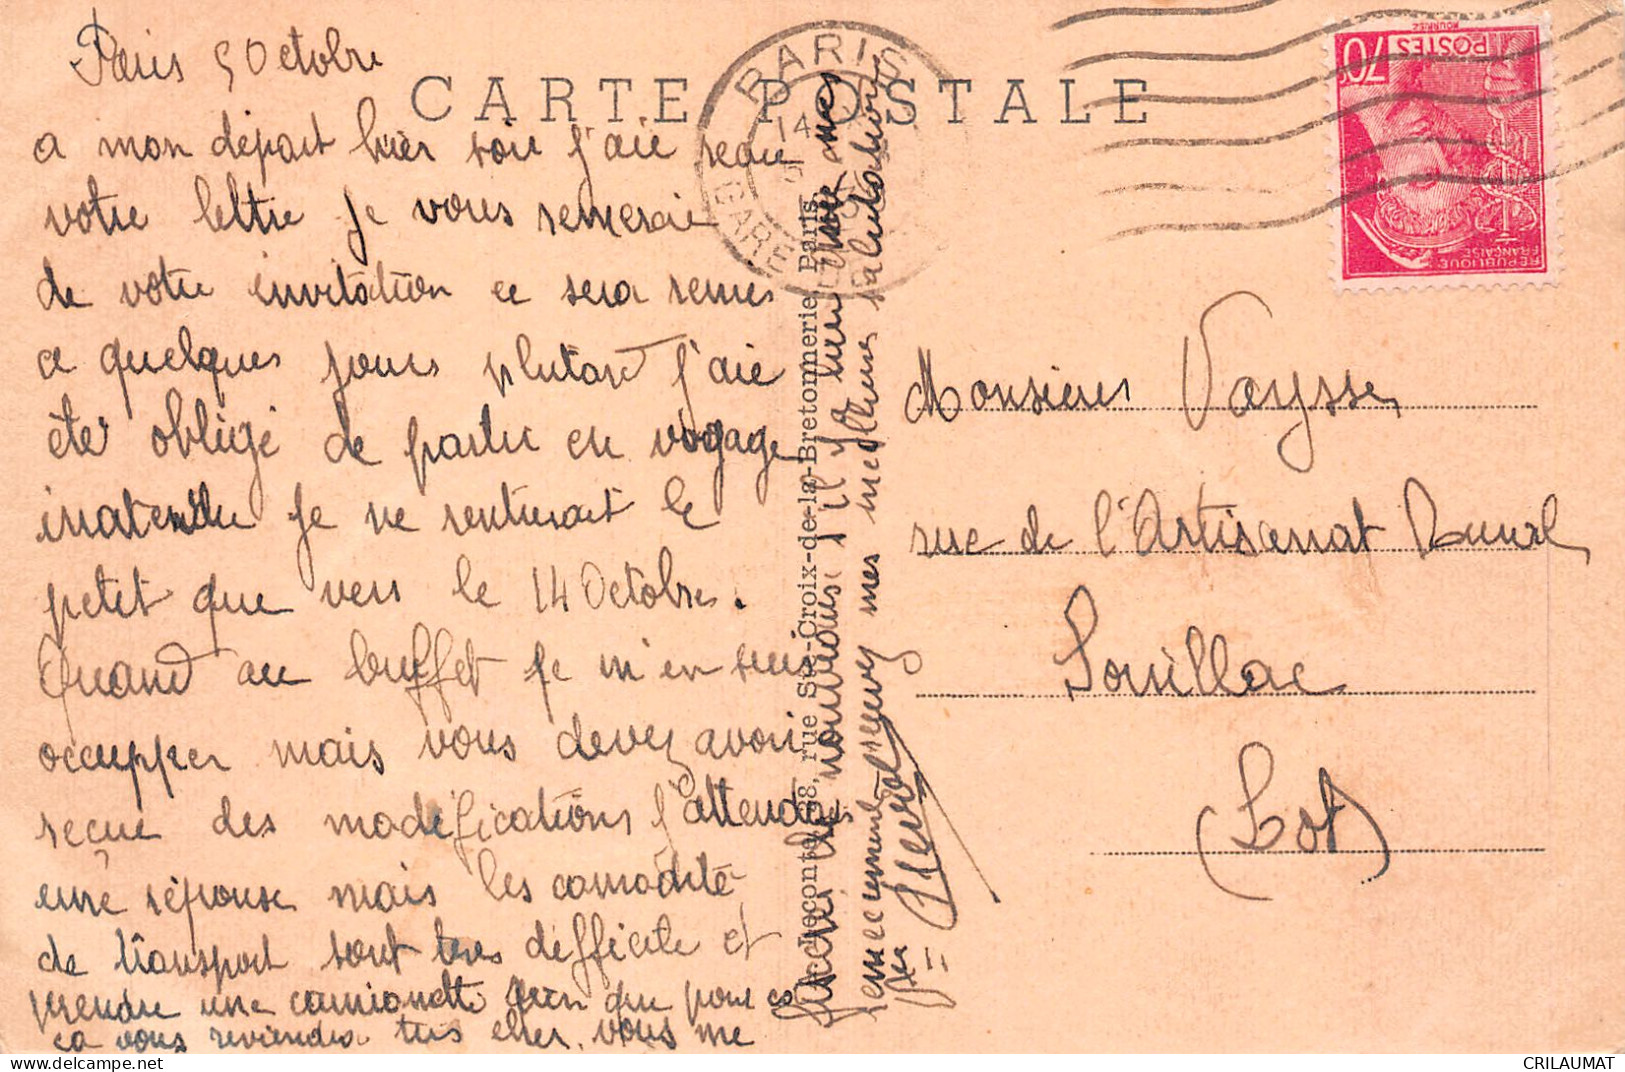 Paris 5 Octobre
CARTE POSTALE
a mon départ hier soir j'aie recue
votre lettre je vous remercie
de votre invitation ce sera remis
a quelques jours plutard j'aie
été obligé de partir en voyage
inatendu je ne rentrerait le
petit que vers le 14 Octobre.
Quand au buffet je m'en suis
occupper mais vous devez avoir
reçue des modifications j'attendais
une réponse mais les comodité
de transport sont tres difficile et
prendre une camionette rien que pour
ca vous reviendra tres cher. vous me
nouveau s'il
mes meilleurs salutations
PARIS
GARE
14
Leconte, 38, rue Ste-Croix-de-la-Bretonnerie, Paris
70c
POSTES
MOURIEZ
REPUBLIQUE
FRANÇAISE
Monsieur Vaysse
rue de l'Artisanat Rural
Souillac
(Lot)
CRILAUMAT